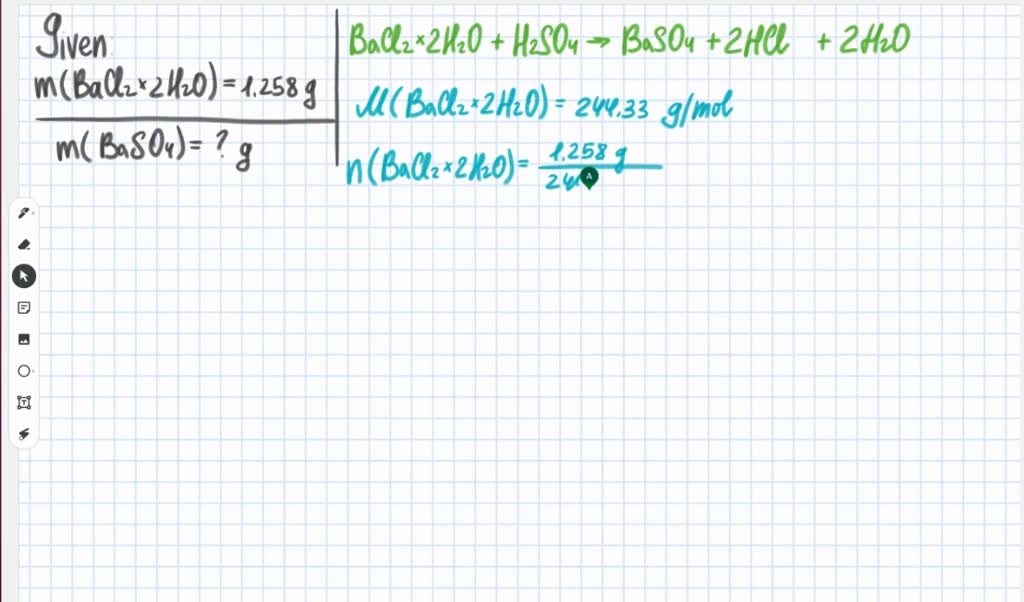 Given:
m(BaCl₂×2H₂O) = 1.258 g
m(BaSO₄) = ? g
BaCl₂×2H₂O + H₂SO₄ → BaSO₄ + 2HCl + 2H₂O
M(BaCl₂×2H₂O) = 244.33 g/mol
n(BaCl₂×2H₂O) = 1.258 g
24
A
T